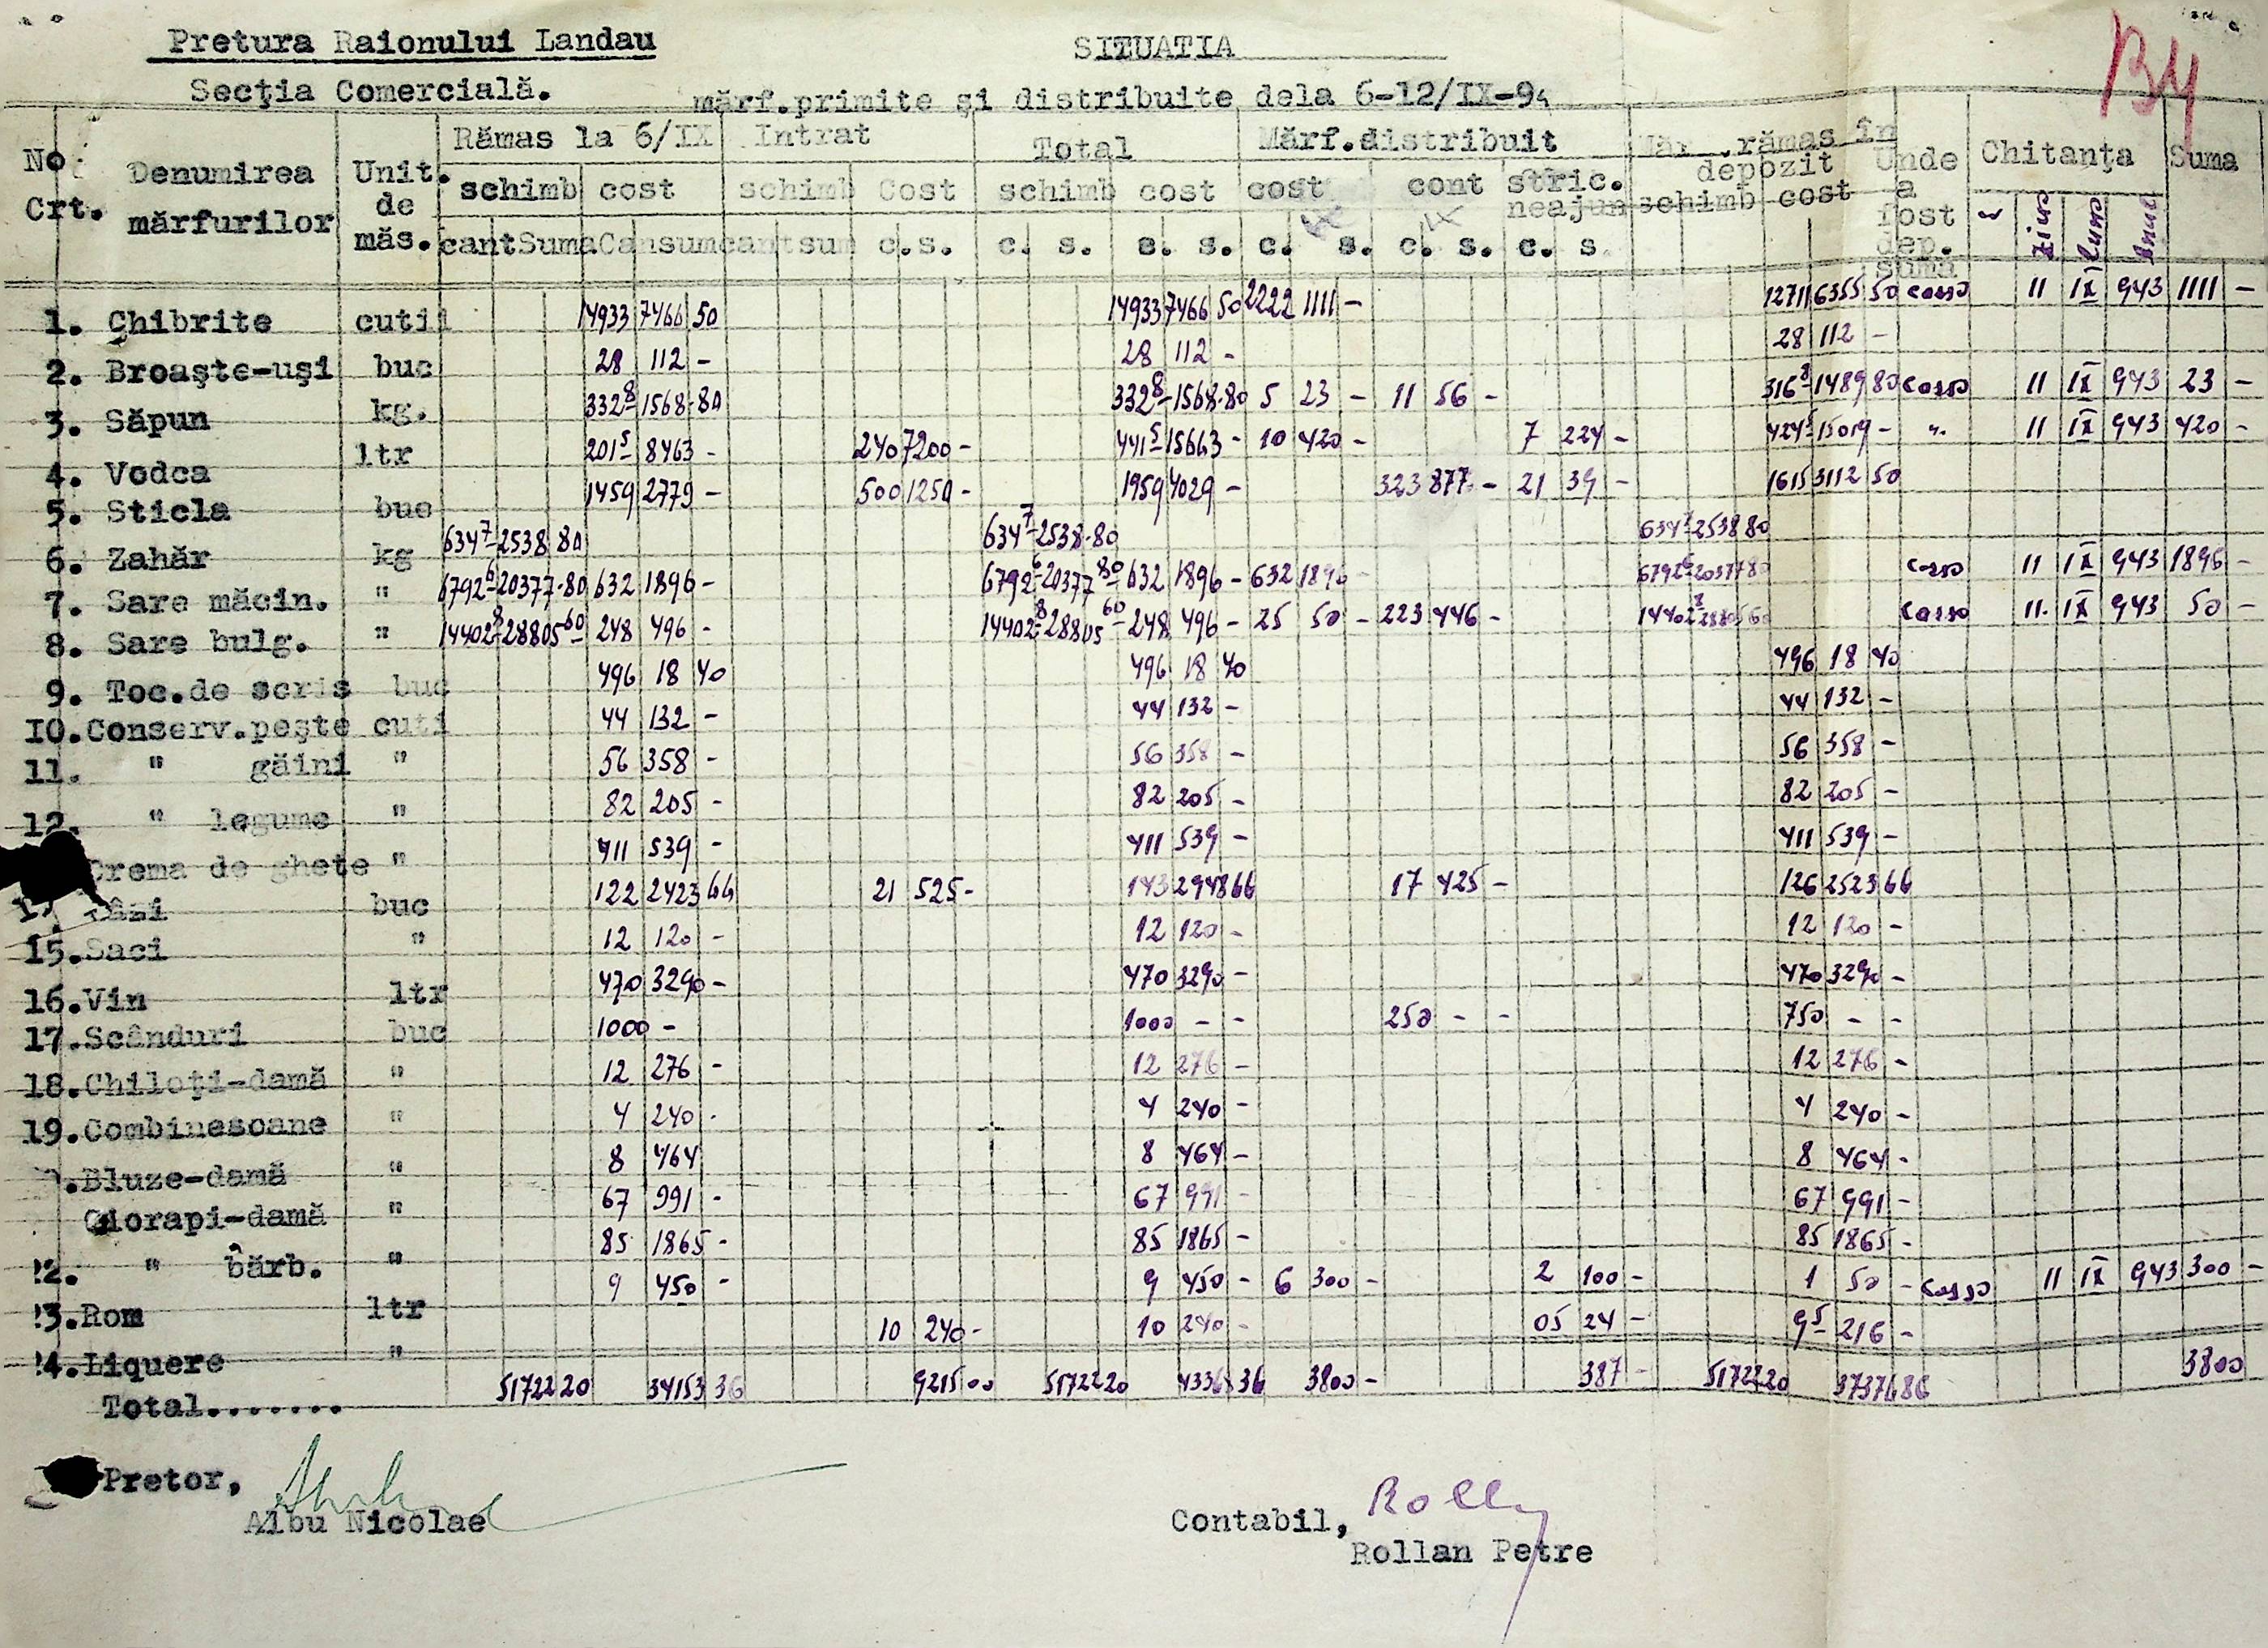 Pretura Raionului Landau
SITUATIA
Secţia Comercială.
mărf.primite şi distribuite dela 6-12/IX-94
By
No Crt. Denumirea mărfurilor Unit. de măs. Rămas la 6/IX Intrat Total Mărf.distribuit Măr .rămas în depozit Unde a fost dep. suma Chitanţa Suma
schimb cost schimb Cost schimb cost cost cont stric. neajun schimb cost ziua luna anul
cant Suma Can sum cant sum c. s. c. s. c. s. c. s. c. s. c. s.
1. Chibrite cutii 14933 7466 50 14933 7466 50 2222 1111 - 12711 6355 50 casso 11 IX 943 1111 -
2. Broaşte-uşi buc 28 112 - 28 112 - 28 112 -
3. Săpun kg. 332 8 1568.80 332 8 1568.80 5 23 - 11 56 - 316 8 1489 80 casso 11 IX 943 23 -
4. Vodca ltr 201 5 8463 - 240 7200 - 441 5 15663 - 10 420 - 7 224 - 424 5 15019 - 11 IX 943 420 -
5. Sticla buc 1459 2779 - 500 1250 - 1959 4029 - 323 877 - 21 39 - 1615 3112 50
6. Zahăr kg 634 7 2538 80 634 7 2538.80 634 7 2538 80
7. Sare măcin. " 6792 6 20377.80 632 1896 - 6792 6 20377 80 632 1896 - 632 1896 - 6792 6 20377 80 casso 11 IX 943 1896 -
8. Sare bulg. " 14402 8 28805 60 248 496 - 14402 8 28805 60 248 496 - 25 50 - 223 446 - 14402 8 28805 60 casso 11. IX 943 50 -
9. Toc.de scris buc 496 18 40 496 18 40 496 18 40
10.Conserv.peşte cuti 44 132 - 44 132 - 44 132 -
11. " găini " 56 358 - 56 358 - 56 358 -
12. " legume " 82 205 - 82 205 - 82 205 -
Crema de ghete " 411 539 - 411 539 - 411 539 -
buc 122 2423 66 21 525 - 143 2948 66 17 425 - 126 2523 66
15.Saci " 12 120 - 12 120 - 12 120 -
16.Vin ltr 470 3290 - 470 3290 - 470 3290 -
17.Scânduri buc 1000 - 1000 - - 250 - - 750 - -
18.Chiloţi-damă " 12 276 - 12 276 - 12 276 -
19.Combinesoane " 4 240 . 4 240 - 4 240 -
.Bluze-damă " 8 464 8 464 - 8 464 -
Ciorapi-damă " 67 991 - 67 991 - 67 991 -
2. " bărb. " 85 1865 - 85 1865 - 85 1865 -
3.Rom ltr 9 450 - 9 450 - 6 300 - 2 100 - 1 50 - casso 11 IX 943 300 -
4.Liquere " 10 240 - 10 240 - 05 24 - 9 5 216 -
Total....... 51722 20 34153 36 9215 00 51722 20 36 3800 - 387 - 51722 20 37376 86 3800
Pretor,
Albu Nicolae
Contabil, Rolly
Rollan Petre